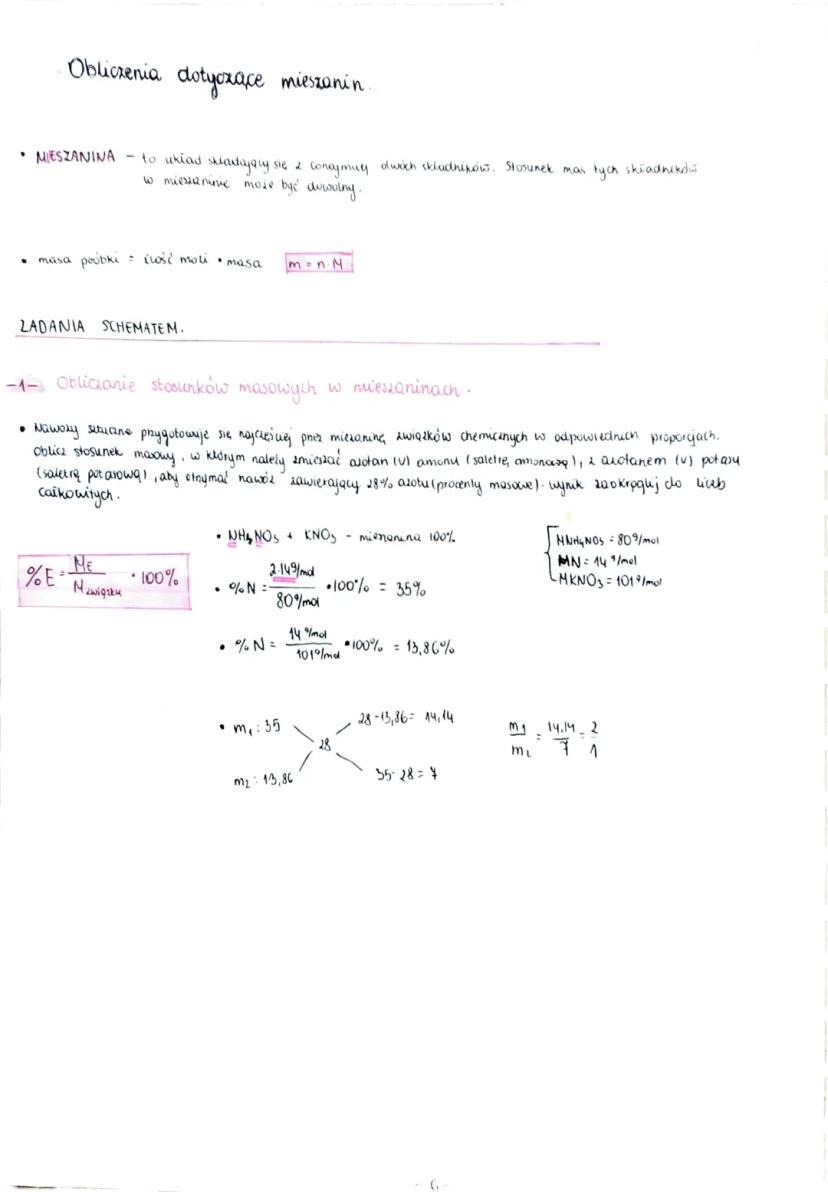 Obliczenia dotyczące mieszanin.
• MIESZANINA - to układ składający się z conajmniej dwóch składników. Stosunek mas tych składników
w mieszaninie może być dowolny.
• masa próbki = ilość moli • masa m = n · M
ZADANIA SCHEMATEM.
-1- Obliczanie stosunków masowych w mieszaninach.
• Nawozy sztuczne przygotowuje się najczęściej przez mieszaninę związków chemicznych w odpowiednich proporcjach.
Oblicz stosunek masowy, w którym należy zmieszać azotan (V) amonu (saletrę amonową), z azotanem (V) potasu
(saletrą potasową), aby otrzymać nawóz zawierający 28% azotu (procenty masowe). Wynik zaokrąglij do liczb
całkowitych.
• NH4NO3 + KNO3 - mieszanina 100%
MNH4NO3 = 80 g/mol
MN = 14 g/mol
MKNO3 = 101 g/mol
%E = ME / Mzwiązku · 100%
• %N = 2·14 g/mol / 80 g/mol • 100% = 35%
• %N = 14 g/mol / 101 g/mol • 100% = 13,86%
• m1: 35 28-13,86 = 14,14
28
m2: 13,86 35-28 = 7
m1 / m2 = 14,14 / 7 = 2 / 1
- 6 -